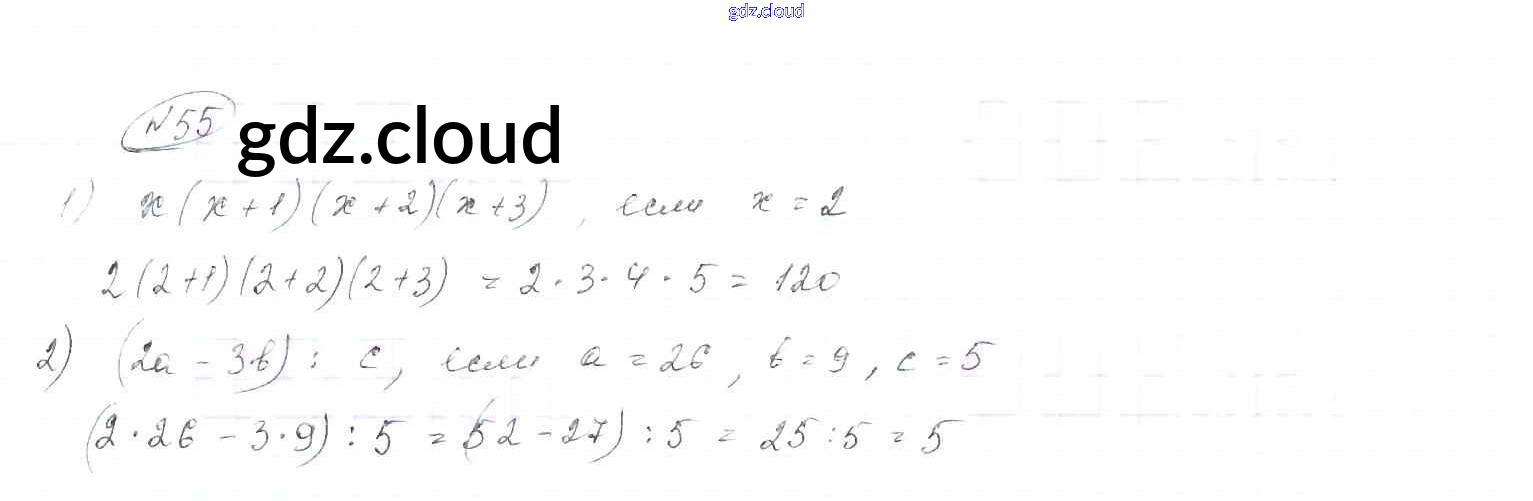 gdz.cloud
№55 gdz.cloud
1) x(x+1)(x+2)(x+3), если x=2
2(2+1)(2+2)(2+3) = 2·3·4·5 = 120
2) (2a - 3b) : c, если a = 26, b = 9, c = 5
(2·26 - 3·9) : 5 = (52 - 27) : 5 = 25 : 5 = 5